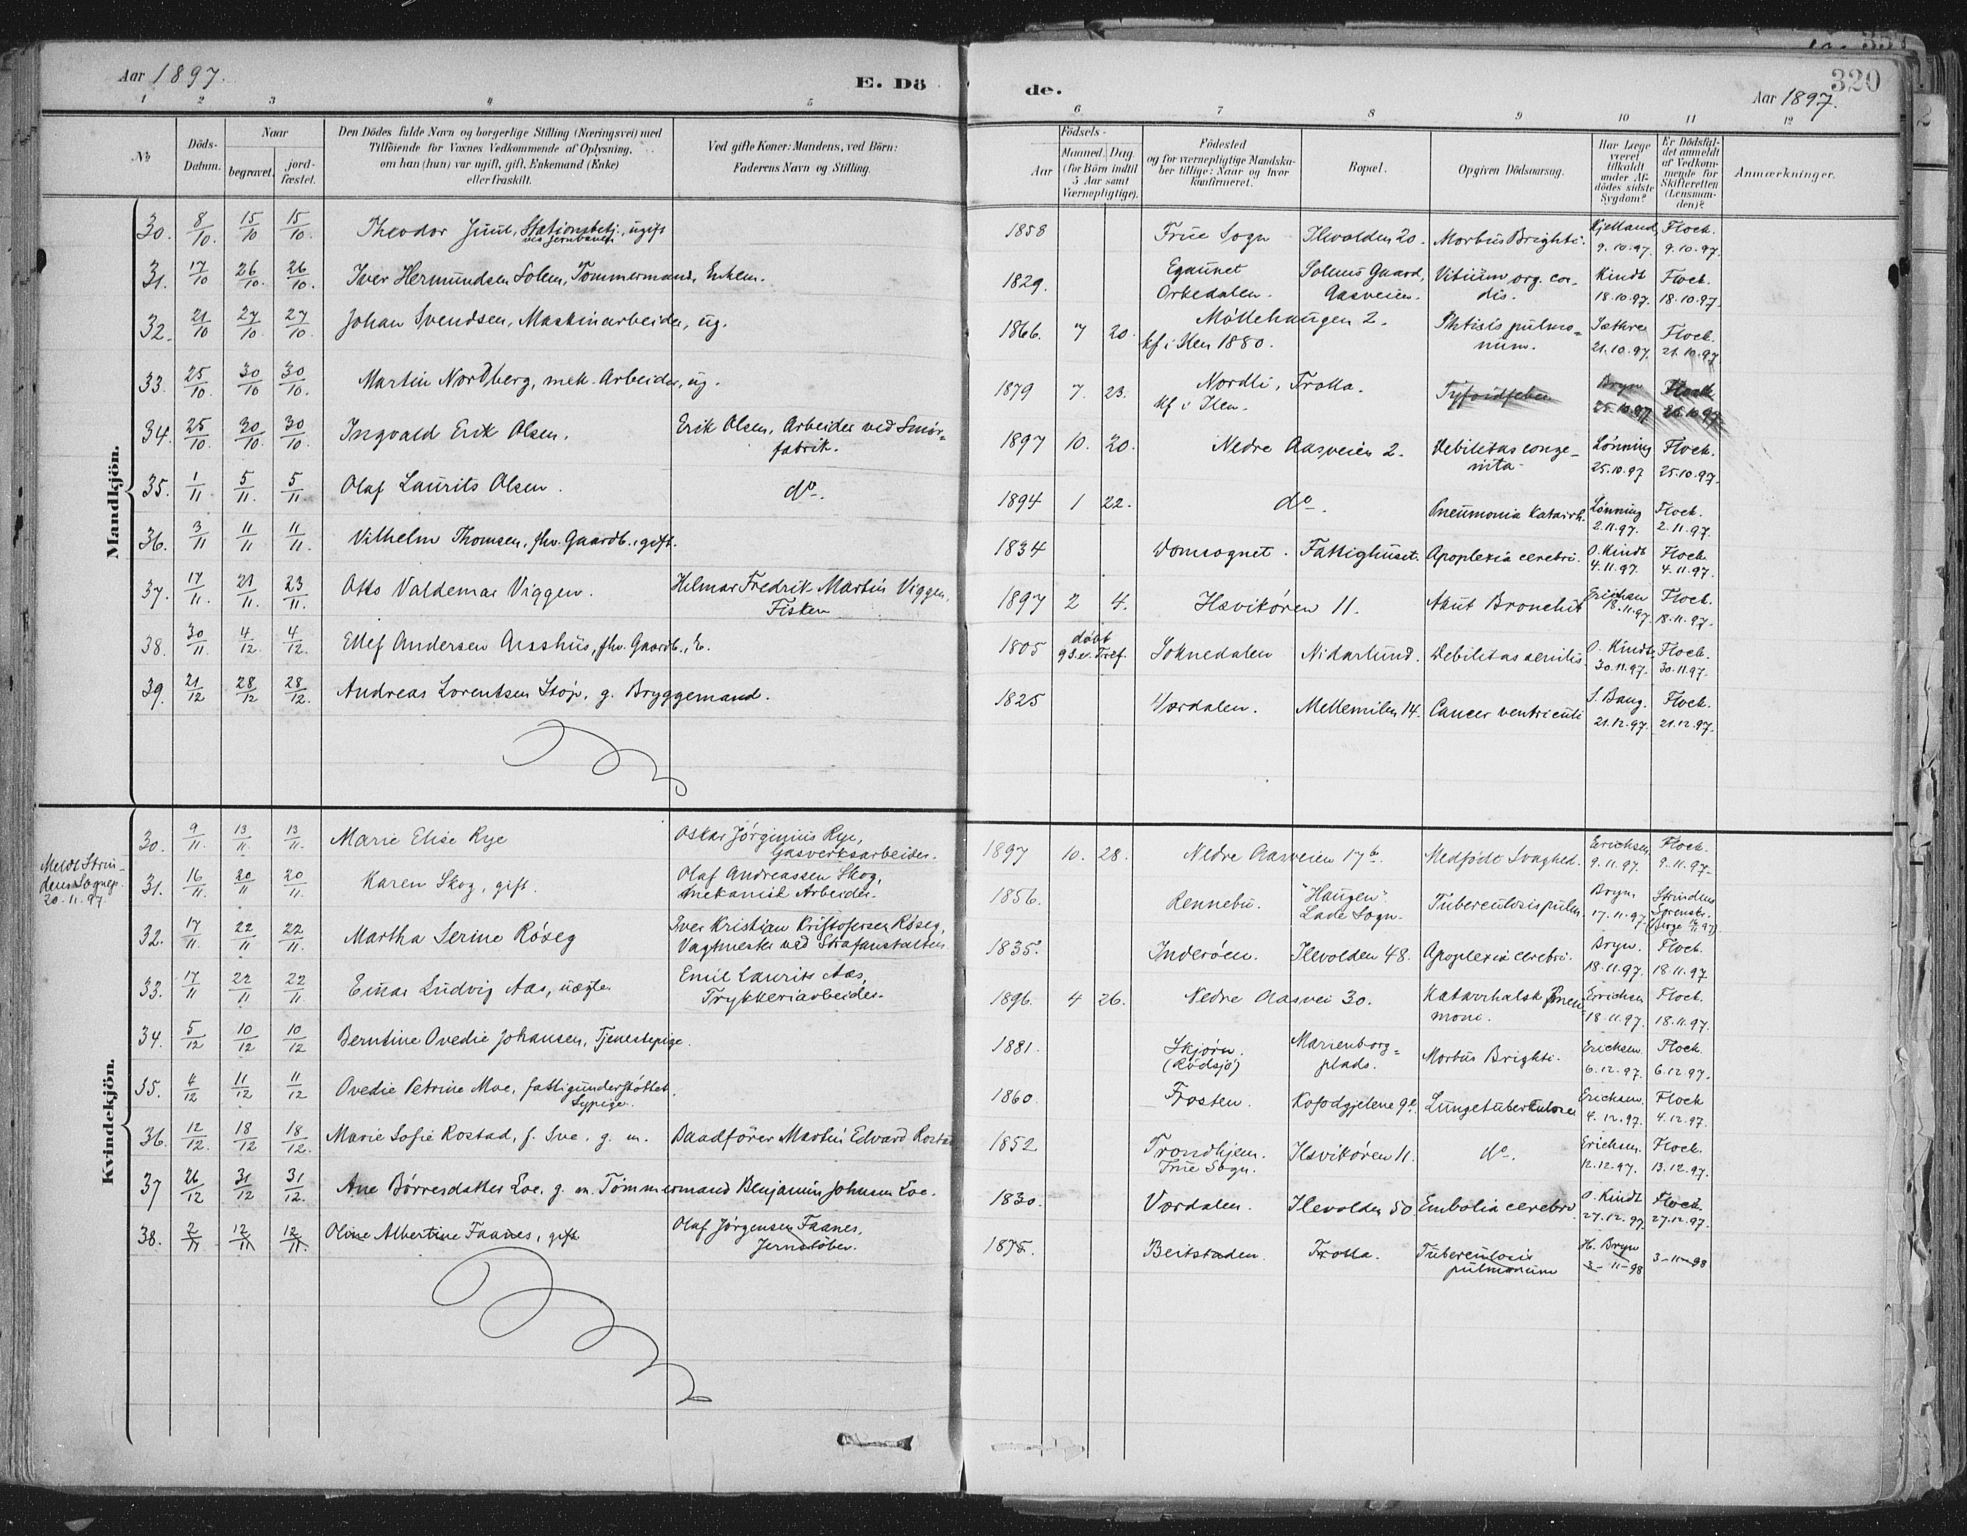 Aar 1897.
E. Dö
1 2 3 4 5
№
Döds-Datum.
Naar
begravet. jord-fæstet.
Den Dödes fulde Navn og borgerlige Stilling (Næringsvei) med
Tilföiende for Voxnes Vedkommende af Oplysning,
om han (hun) var ugift, gift, Enkemand (Enke)
eller fraskilt.
Ved gifte Koner: Mandens, ved Börn:
Faderens Navn og Stilling.
Mandkjön.
30. 8/10. 15/10 15/10. Theodor Juul, Stationsbetj., ugift
ved jernbanen
31. 17/10 26/10. 26/10. Iver Hermundsen Solem, Tømmermand, Enkem.
32. 21/10 27/10. 27/10. Johan Svendsen, Maskinarbeider, ug.
33. 25/10. 30/10 30/10. Martin Nordberg, mek. Arbeider, ug.
34. 25/10. 30/10. 30/10. Ingvald Erik Olsen. Erik Olsen, Arbeider ved Smør-
fabrik.
35. 1/11 5/11. 5/11. Olaf Laurits Olsen. do.
36. 3/11 11/11. 11/11. Vilhelm Thomsen, fhv. Gaardb., gift.
37. 17/11. 21/11. 23/11. Otto Valdemar Viggen. Hilmar Fredrik Martin Viggen,
Fisker
38. 30/11. 4/12 4/12. Ellef Andersen Aasshus, fhv. Gaardb., E.
39. 21/12 28/12 28/12. Andreas Lorentsen Stöp, g. Bryggemand.
Kvindekjön.
30. 9/11. 13/11. 13/11. Marie Elise Rye Oskar Jørginius Rye,
Gasverksarbeider.
Meldt Strin-
dens Sognepr.
20.11.97.
31. 16/11 20/11 20/11. Karen Skog, gift. Olaf Andreassen Skog,
mekanisk Arbeider.
32. 17/11. 22/11 22/11. Martha Serine Røseg Iver Kristian Kristofersen Røseg,
Vagtmester ved Strafanstalten
33. 17/11 22/11 22/11 Einar Ludvig Aas, uægte Emil Laurits Aas,
Trykkeriarbeider.
34. 5/12 10/12 10/12 Berntine Ovedie Johansen, Tjenestepige.
35. 4/12 11/12 11/12 Ovedie Petrine Moe, fattigunderstøttet.
Sypige.
36. 12/12. 18/12 18/12. Marie Sofie Rostad, f. Sve, g. m. Baadfører Martin Edvard Rostad
37 26/12 31/12 31/12. Ane Børresdatter Loe, g. m. Tömmermand Benjamin Johnsen Loe.
38. 2/11 12/11 12/11. Oline Albertine Faanes, gift Olaf Jørgensen Faanes,
Jernstøber.
de.
320
Aar 1897.
6 7 8 9 10 11 12
Födsels-
Aar Maaned. Dag.
(for Börn indtil
5 Aar samt
Værnepligtige).
Födested
og for værnepligtige Mandska-
ber tillige: Naar og hvor
konfirmeret.
Bopæl.
Opgiven Dödsaarsag.
Har Læge
været
tilkaldt
under Af-
dödes sidste
Sygdom?
Er Dödsfal-
det anmeldt
af Vedkom-
mende for
Skifteretten
(Lensman-
den)?
Anmærkninger.
1858 Frue Sogn Ilevolden 20. Morbus Brighti. Kjelland 9.10.97. Flock. 9.10.97.
1829. Egaunet Orkedalen. Solems Gaard, Aasveien. Vitium org. cor-
dis. Kindt 18.10.97. Flock. 18.10.97.
1866. 7 20. Möllehaugen 2.
kf i Ilen 1880. Phtisis pulmo-
num. Sæthre 21.10.97. Flock. 21.10.97
1879 7. 23. Nordli, Trolla.
kf i Ilen. Tyfoidfeber Bryn 25.10.97 Flock 26.10.97.
1897 10. 20. Nedre Aasveien 2. Debilitas conge-
nita. Lønning 25.10.97 Flock. 25.10.97.
1894 1 22. do. Pneumonia Katarrh. Lønning 2.11.97. Flock. 2.11.97.
1834 Domsognet. Fattighuset. Apoplexia cerebri. O. Kindt 4.11.97. Flock. 4.11.97.
1897 2 4. Ilsvikören 11. Akut Bronchit Erichsen 18.11.97 Flock. 18.11.97.
1805 døbt
9 S. e. Tref. Soknedalen Nidarlund. Debilitas senilis O. Kindt 30.11.97. Flock. 30.11.97.
1825 Værdalen. Mellemilen 14. Cancer ventriculi S. Bang. 21.12.97. Flock. 21.12.97.
1897 10. 28. Nedre Aasveien 17b. Medfødt Svaghed. Erichsen 9.11.97. Flock. 9.11.97.
1856. Rennebu. "Haugen" Lade Sogn. Tuberculosis pulm. Bryn 17.11.97 Strindens
1835. Inderøen. Ilevolden 48. Apoplexia cerebri. Bryn. 18.11.97. Flock. 18.11.97.
1896. 4 26. Nedre Aasvei 30. Katarrhalsk Pneu
moni. Erichsen 18.11.97. Flock. 18.11.97.
1881. Skjørn. (Rödsjö) Marienborg=
plads. Morbus Brighti. Erichsen. 6.12.97. Flock. 6.12.97.
1860. Frosten. Kofodgjelene 9e. Lungetuberkulose Erichsen. 4.12.97. Flock 4.12.97.
1852 Trondhjem. Frue Sogn. Ilsvikören 11. do. Erichsen. 12.12.97. Flock. 13.12.97.
1830. Værdalen. Ilevolden 50 Embolia cerebri O. Kindt 27.12.97 Flock 27.12.97.
1875. Beitstaden. Trolla. Tuberculosis
pulmonum H. Bryn 3-11-98 3-11-98